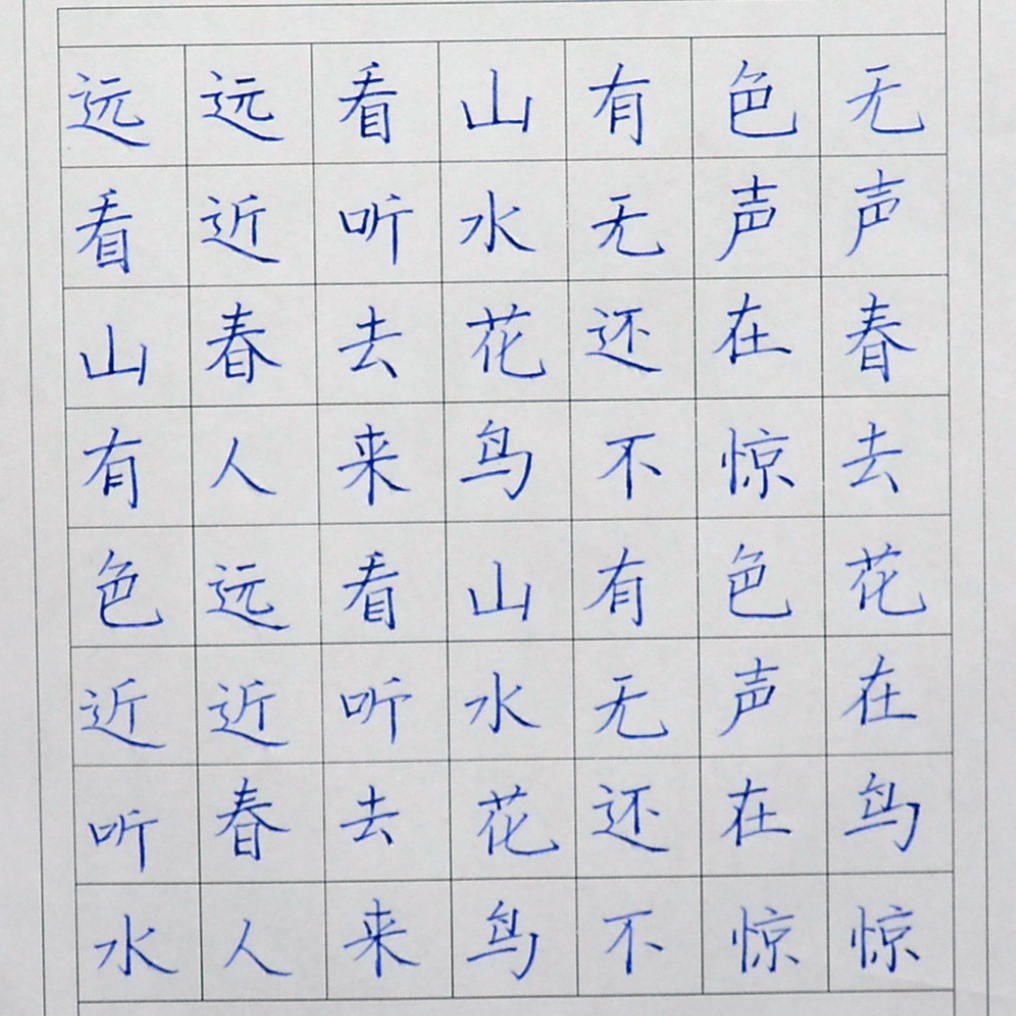 远远看山有色无
看近听水无声声
山春去花还在春
有人来鸟不惊去
色远看山有色花
近近听水无声在
听春去花还在鸟
水人来鸟不惊惊